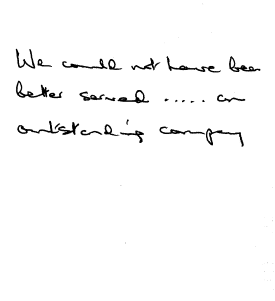 We could not have been
better served ..... an
outstanding company